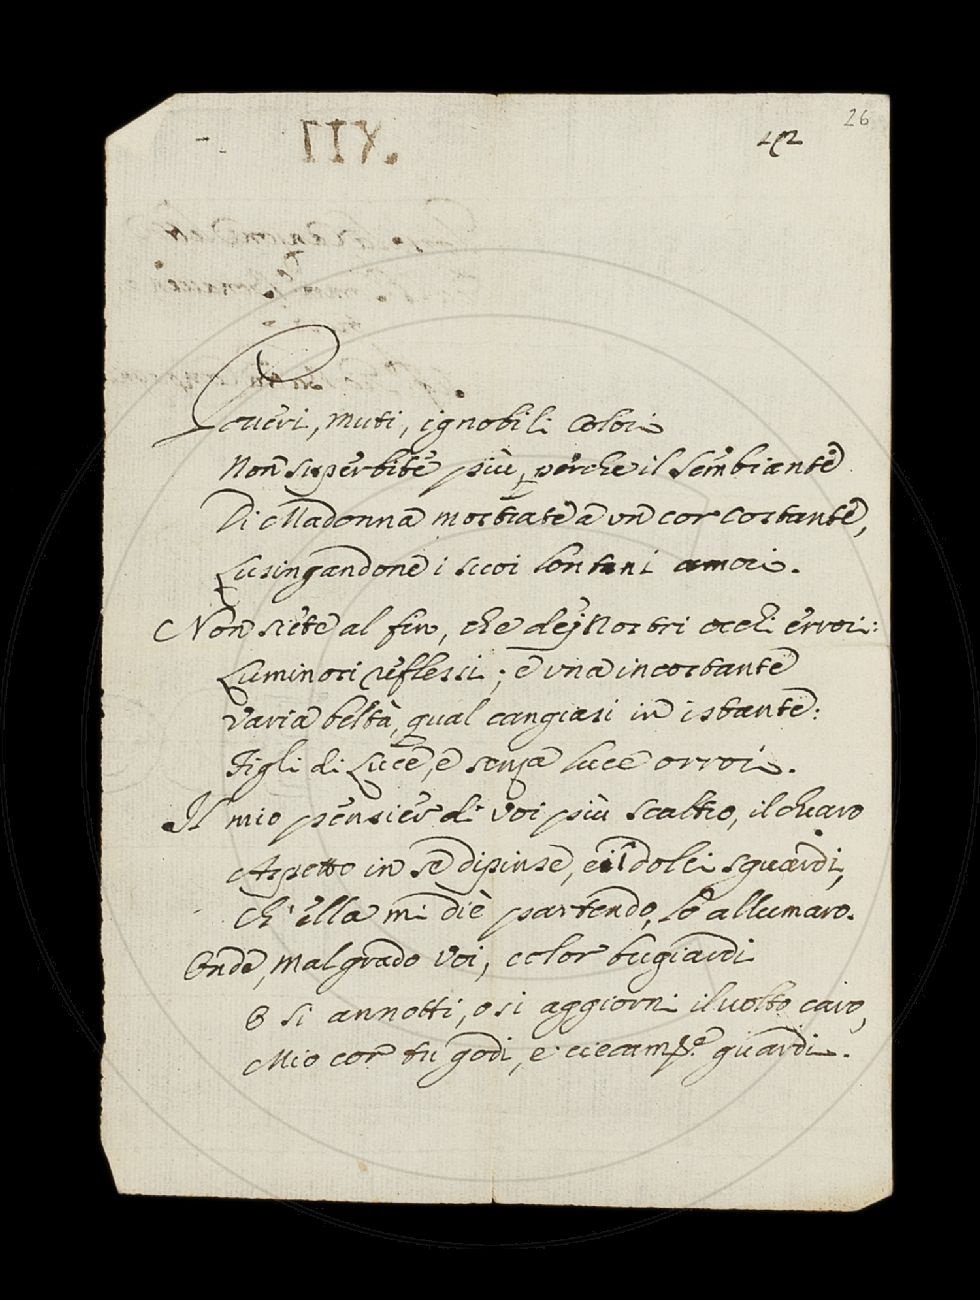 26
42
Poueri, muti, ignobili Colori
Non superbite più, perche il sembiante
Di Madonna mostrate a un cor costante,
Lusingandone i suoi lontani amori.
Non siete al fin, che dej Nostri occhi errori:
Luminosi reflessi; e una incostante
Varia beltà, qual cangiasi in istante:
Figli di Luce, e senza luce orrori.
Il mio pensier di voi più scaltro, il chiaro
Aspetto in se dipinse, e i dolci sguardi,
Ch' ella mi diè partendo, lo allumaro.
Onde, malgrado voi, color bugiardi
O si annotti, o si aggiorni il uolto caro,
Mio cor tu godi, e ciecamᵗᵉ guardi.